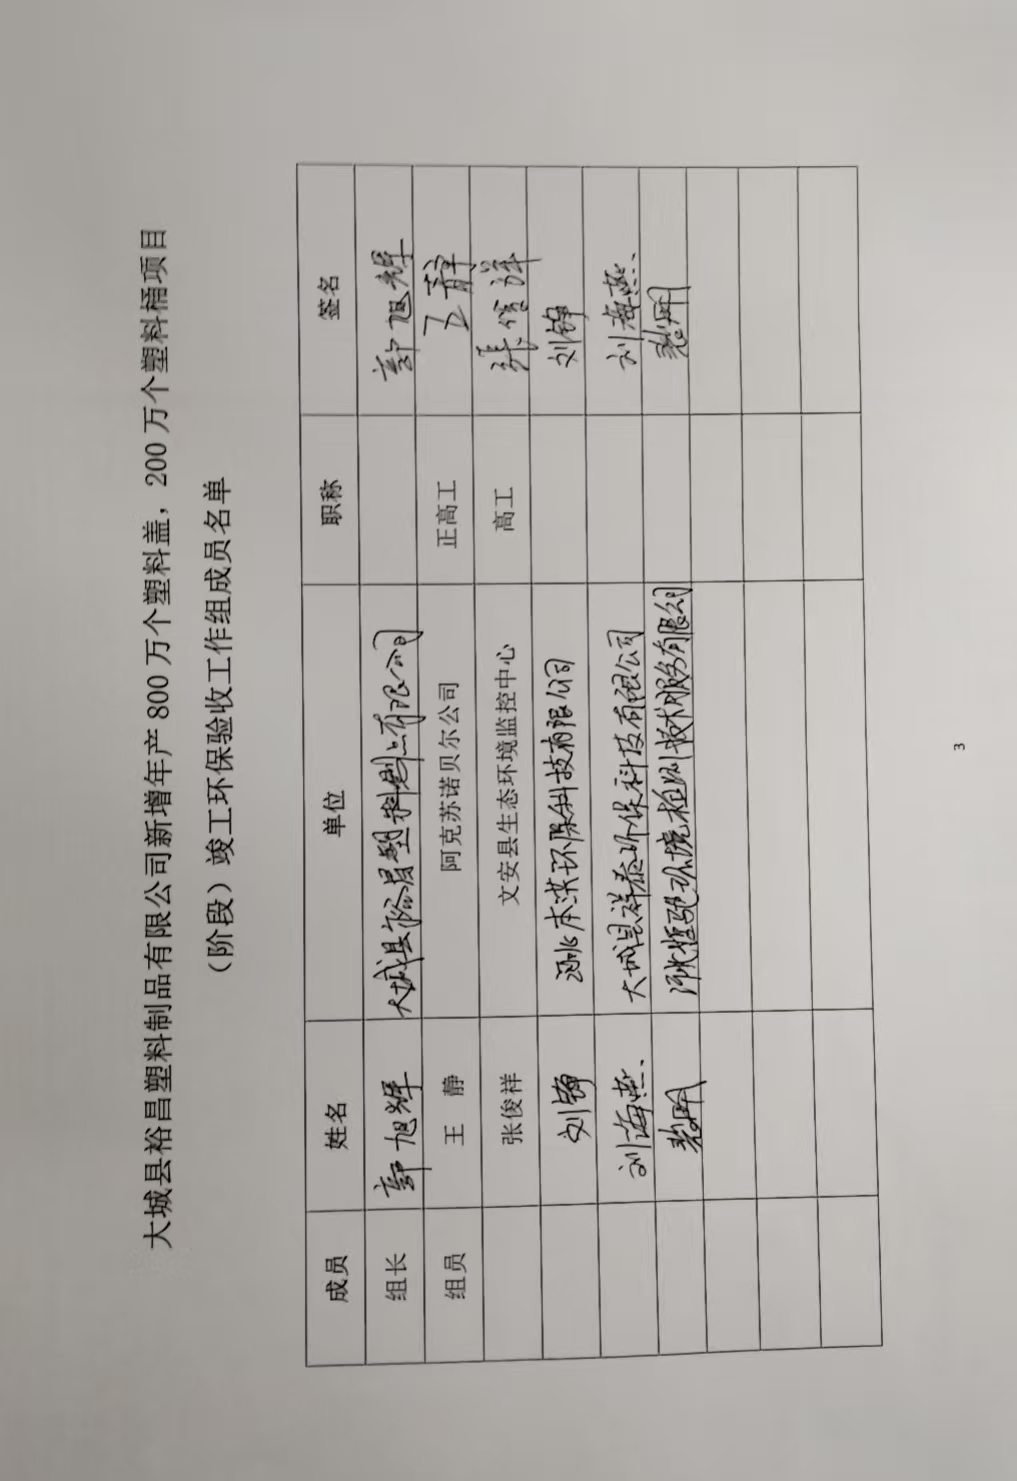 大城县裕昌塑料制品有限公司新增年产 800 万个塑料盖，200 万个塑料桶项目
（阶段）竣工环保验收工作组成员名单
成员 姓名 单位 职称 签名
组长 郭旭辉 大城县裕昌塑料制品有限公司 郭旭辉
组员 王 静 阿克苏诺贝尔公司 正高工 王静
张俊祥 文安县生态环境监控中心 高工 张俊祥
刘铮 环保科技有限公司 刘铮
刘海燕 大城县祥泰环保科技有限公司 刘海燕
环境检测技术服务有限公司
3